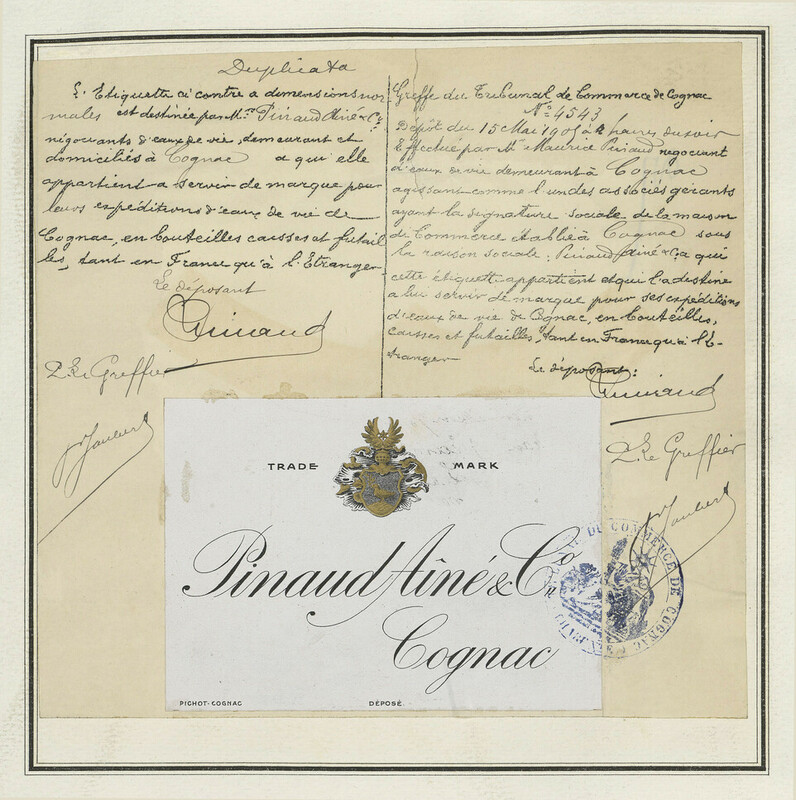 Duplicata
L'Etiquette ci contre a dimensions nor
males est destinée par Mrs Pinaud Aîné & Co
négociants d'eaux de vie, demeurant et
domiciliés à Cognac a qui elle
appartient a servir de marque pour
leurs expéditions d'eaux de vie de
Cognac, en bouteilles caisses et futail
les, tant en France qu'à l'Etranger
Le déposant
Pinaud
Le Greffier
Joubert
Greffe du Tribunal de Commerce de Cognac
No 4543
Dépôt du 15 Mai 1905 à heures du soir
Effectué par Mr Maurice Pinaud négociant
d'eaux de vie demeurant à Cognac
agissant comme l'un des associés gérants
ayant la signature sociale de la maison
de Commerce établie à Cognac sous
la raison sociale: Pinaud Aîné & Co a qui
cette étiquette appartient et qui l'a destine
a lui servir de marque pour ses expéditions
d'eaux de vie de Cognac, en bouteilles,
caisses et futailles, tant en France qu'à l'E-
tranger
Le déposant:
Pinaud
Le Greffier
Joubert
TRADE MARK
Pinaud Aîné & Co
Cognac
PICHOT-COGNAC DÉPOSÉ
DE COMMERCE DE COGNAC